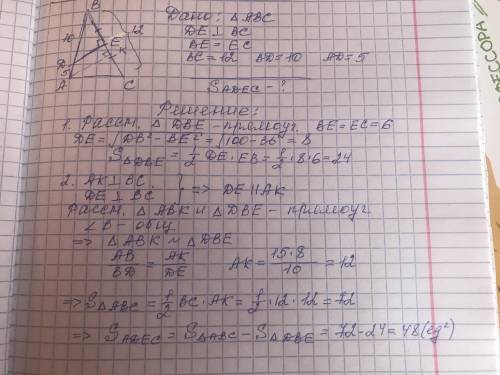 B
12
10
D
E
K
5
A
C
Дано: △ABC
DE ⊥ BC
BE = EC
BC = 12 BD = 10 AD = 5
SADEC - ?
Решение:
1. Рассм. △ DBE - прямоуг. BE = EC = 6
DE = √DB² - BE² = √100 - 36 = 8
S△DBE = 1/2 DE · EB = 1/2 · 8 · 6 = 24
2. AK ⊥ BC } => DE || AK
DE ⊥ BC
Рассм. △ ABK и △ DBE - прямоуг.
∠B - общ
=> △ ABK и △ DBE
AB/BD = AK/DE AK = 15 · 8/10 = 12
=> S△ABC = 1/2 BC · AK = 1/2 · 12 · 12 = 72
=> SADEC = S△ABC - S△DBE = 72 - 24 = 48 (ед²)